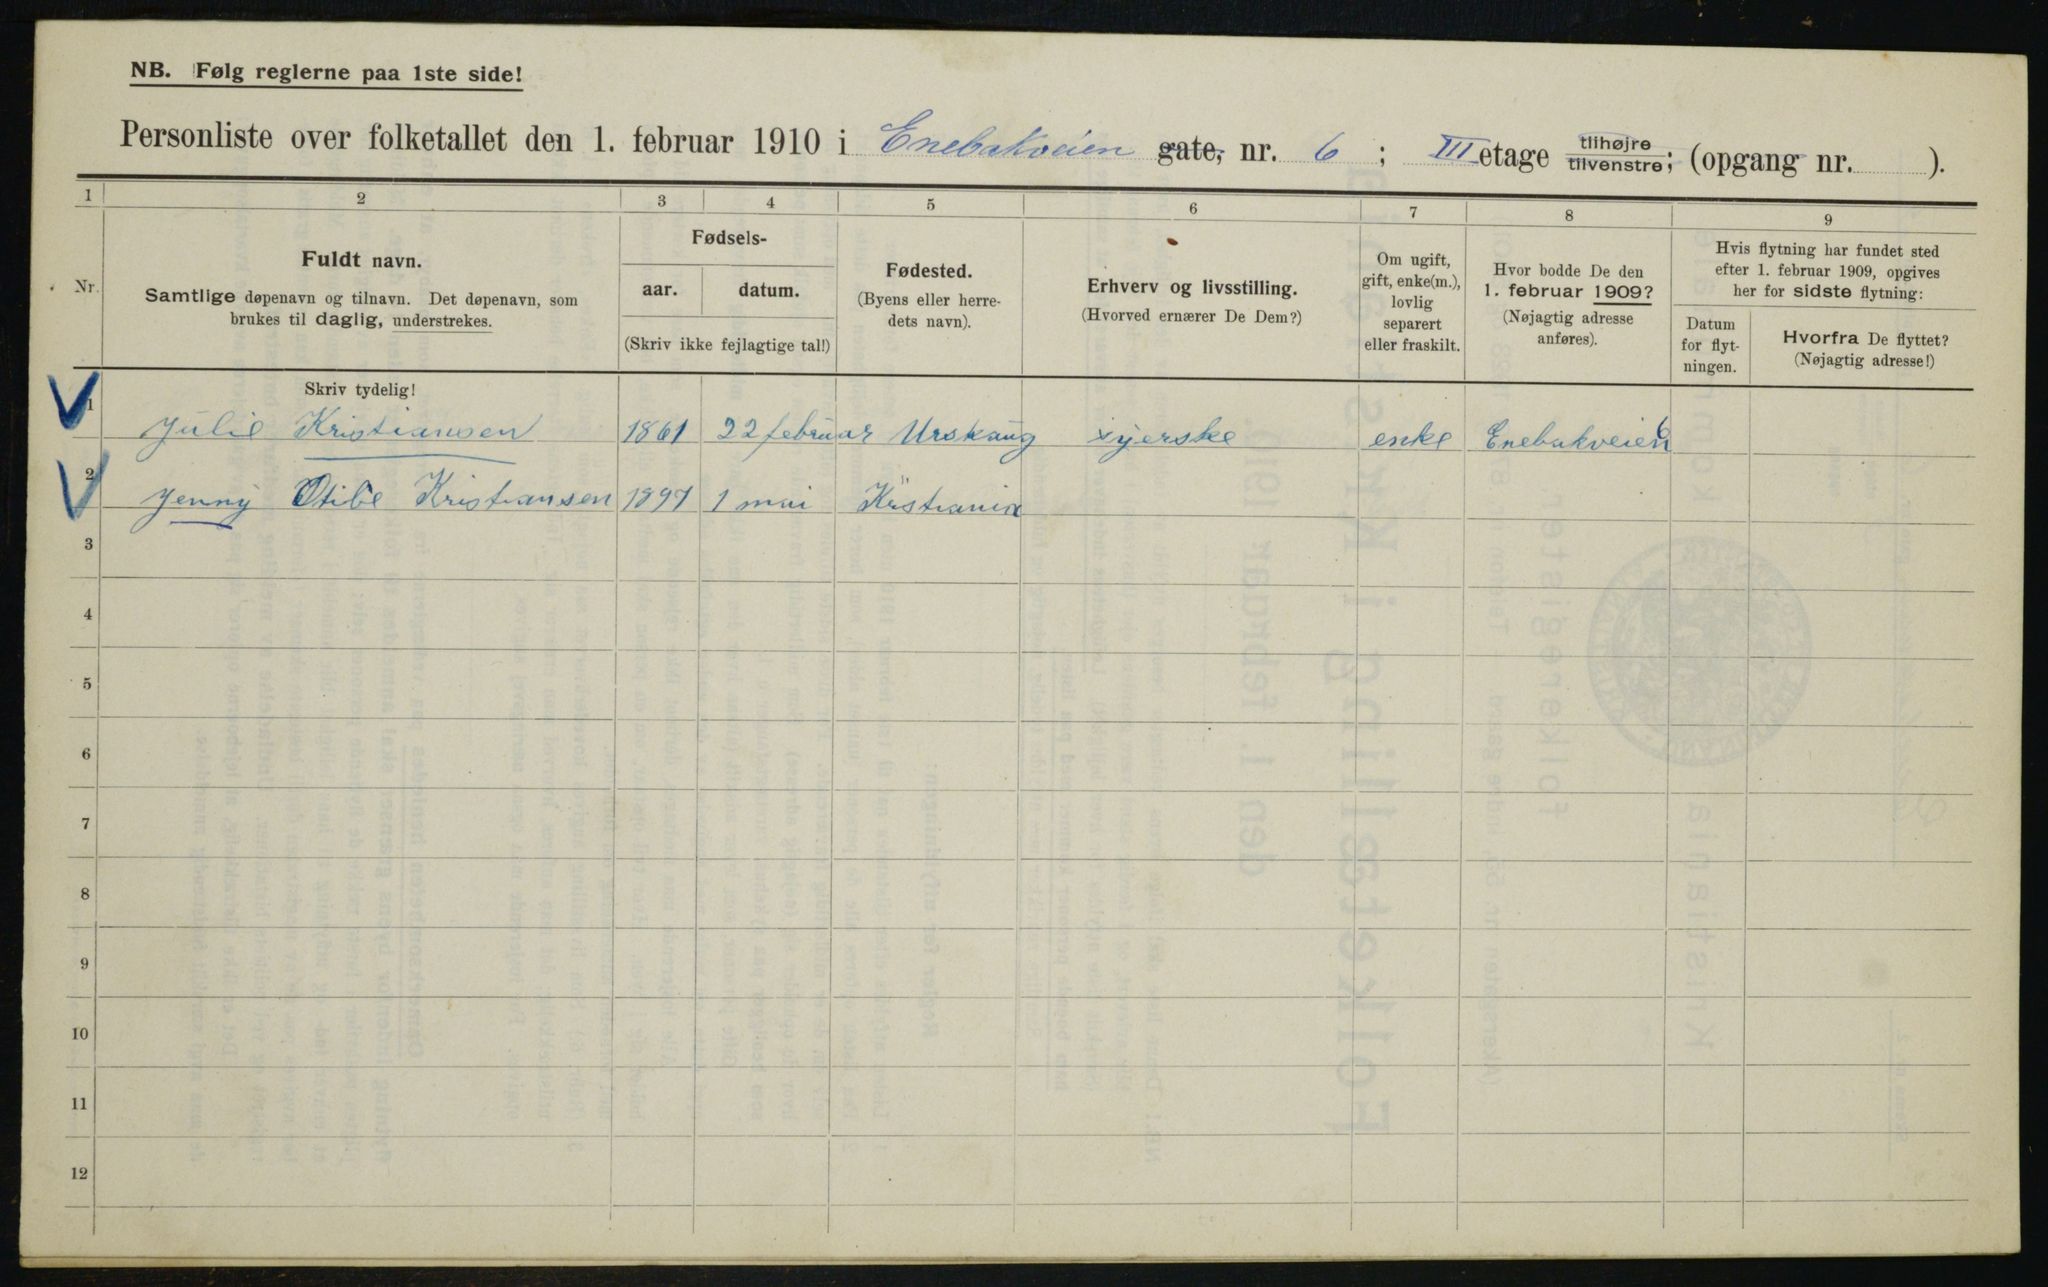 NB. Følg reglerne paa 1ste side!
Personliste over folketallet den 1. februar 1910 i Enebakveien gate, nr. 6 ; III etage tilhøjre tilvenstre; (opgang nr. ).
1 2 3 4 5 6 7 8 9
Nr.
Fuldt navn.
Samtlige døpenavn og tilnavn. Det døpenavn, som
brukes til daglig, understrekes.
Fødsels-
aar. datum.
(Skriv ikke fejlagtige tal!)
Fødested.
(Byens eller herre-
dets navn).
Erhverv og livsstilling.
(Hvorved ernærer De Dem?)
Om ugift,
gift, enke(m.),
lovlig
separert
eller fraskilt.
Hvor bodde De den
1. februar 1909?
(Nøjagtig adresse
anføres).
Hvis flytning har fundet sted
efter 1. februar 1909, opgives
her for sidste flytning:
Datum
for flyt-
ningen.
Hvorfra De flyttet?
(Nøjagtig adresse!)
Skriv tydelig!
1 Julie Kristiansen 1861 22 februar Urskaug syerske enke Enebakveien 6
2 Jenny Kristiansen 1897 1 mai Kristiania
3
4
5
6
7
8
9
10
11
12